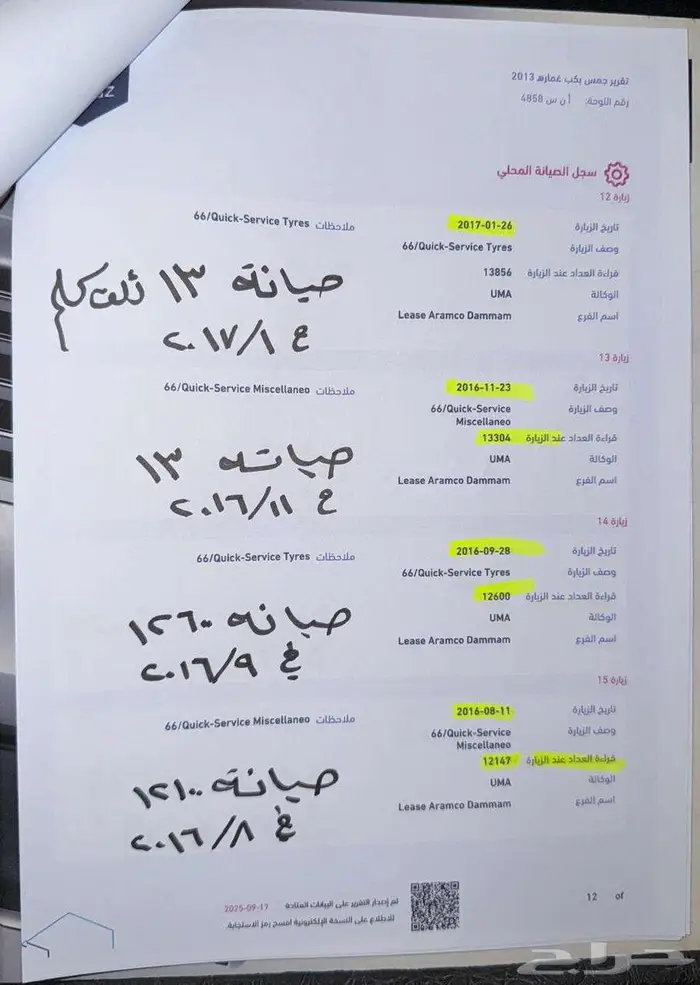 تقرير جمس بكب غمارة 2013
رقم اللوحة: أ ن س 4858
سجل الصيانة المحلي
زيارة 12
تاريخ الزيارة 2017-01-26
ملاحظات 66/Quick-Service Tyres
وصف الزيارة 66/Quick-Service Tyres
قراءة العداد عند الزيارة 13856
الوكالة UMA
اسم الفرع Lease Aramco Dammam
صيانة ١٣ ألف كلم
في ٢٠١٧/١
زيارة 13
تاريخ الزيارة 2016-11-23
ملاحظات 66/Quick-Service Miscellaneo
وصف الزيارة 66/Quick-Service
Miscellaneo
قراءة العداد عند الزيارة 13304
الوكالة UMA
اسم الفرع Lease Aramco Dammam
صيانه ١٣
في ٢٠١٦/١١
زيارة 14
تاريخ الزيارة 2016-09-28
ملاحظات 66/Quick-Service Tyres
وصف الزيارة 66/Quick-Service Tyres
قراءة العداد عند الزيارة 12600
الوكالة UMA
اسم الفرع Lease Aramco Dammam
صيانه ١٢٦٠٠
في ٢٠١٦/٩
زيارة 15
تاريخ الزيارة 2016-08-11
ملاحظات 66/Quick-Service Miscellaneo
وصف الزيارة 66/Quick-Service
Miscellaneo
قراءة العداد عند الزيارة 12147
الوكالة UMA
اسم الفرع Lease Aramco Dammam
صيانة ١٢١٠٠
في ٢٠١٦/٨
12 of
تم إصدار التقرير على البيانات المتاحة 2025-09-17
للاطلاع على النسخة الإلكترونية امسح رمز الاستجابة.
حراج